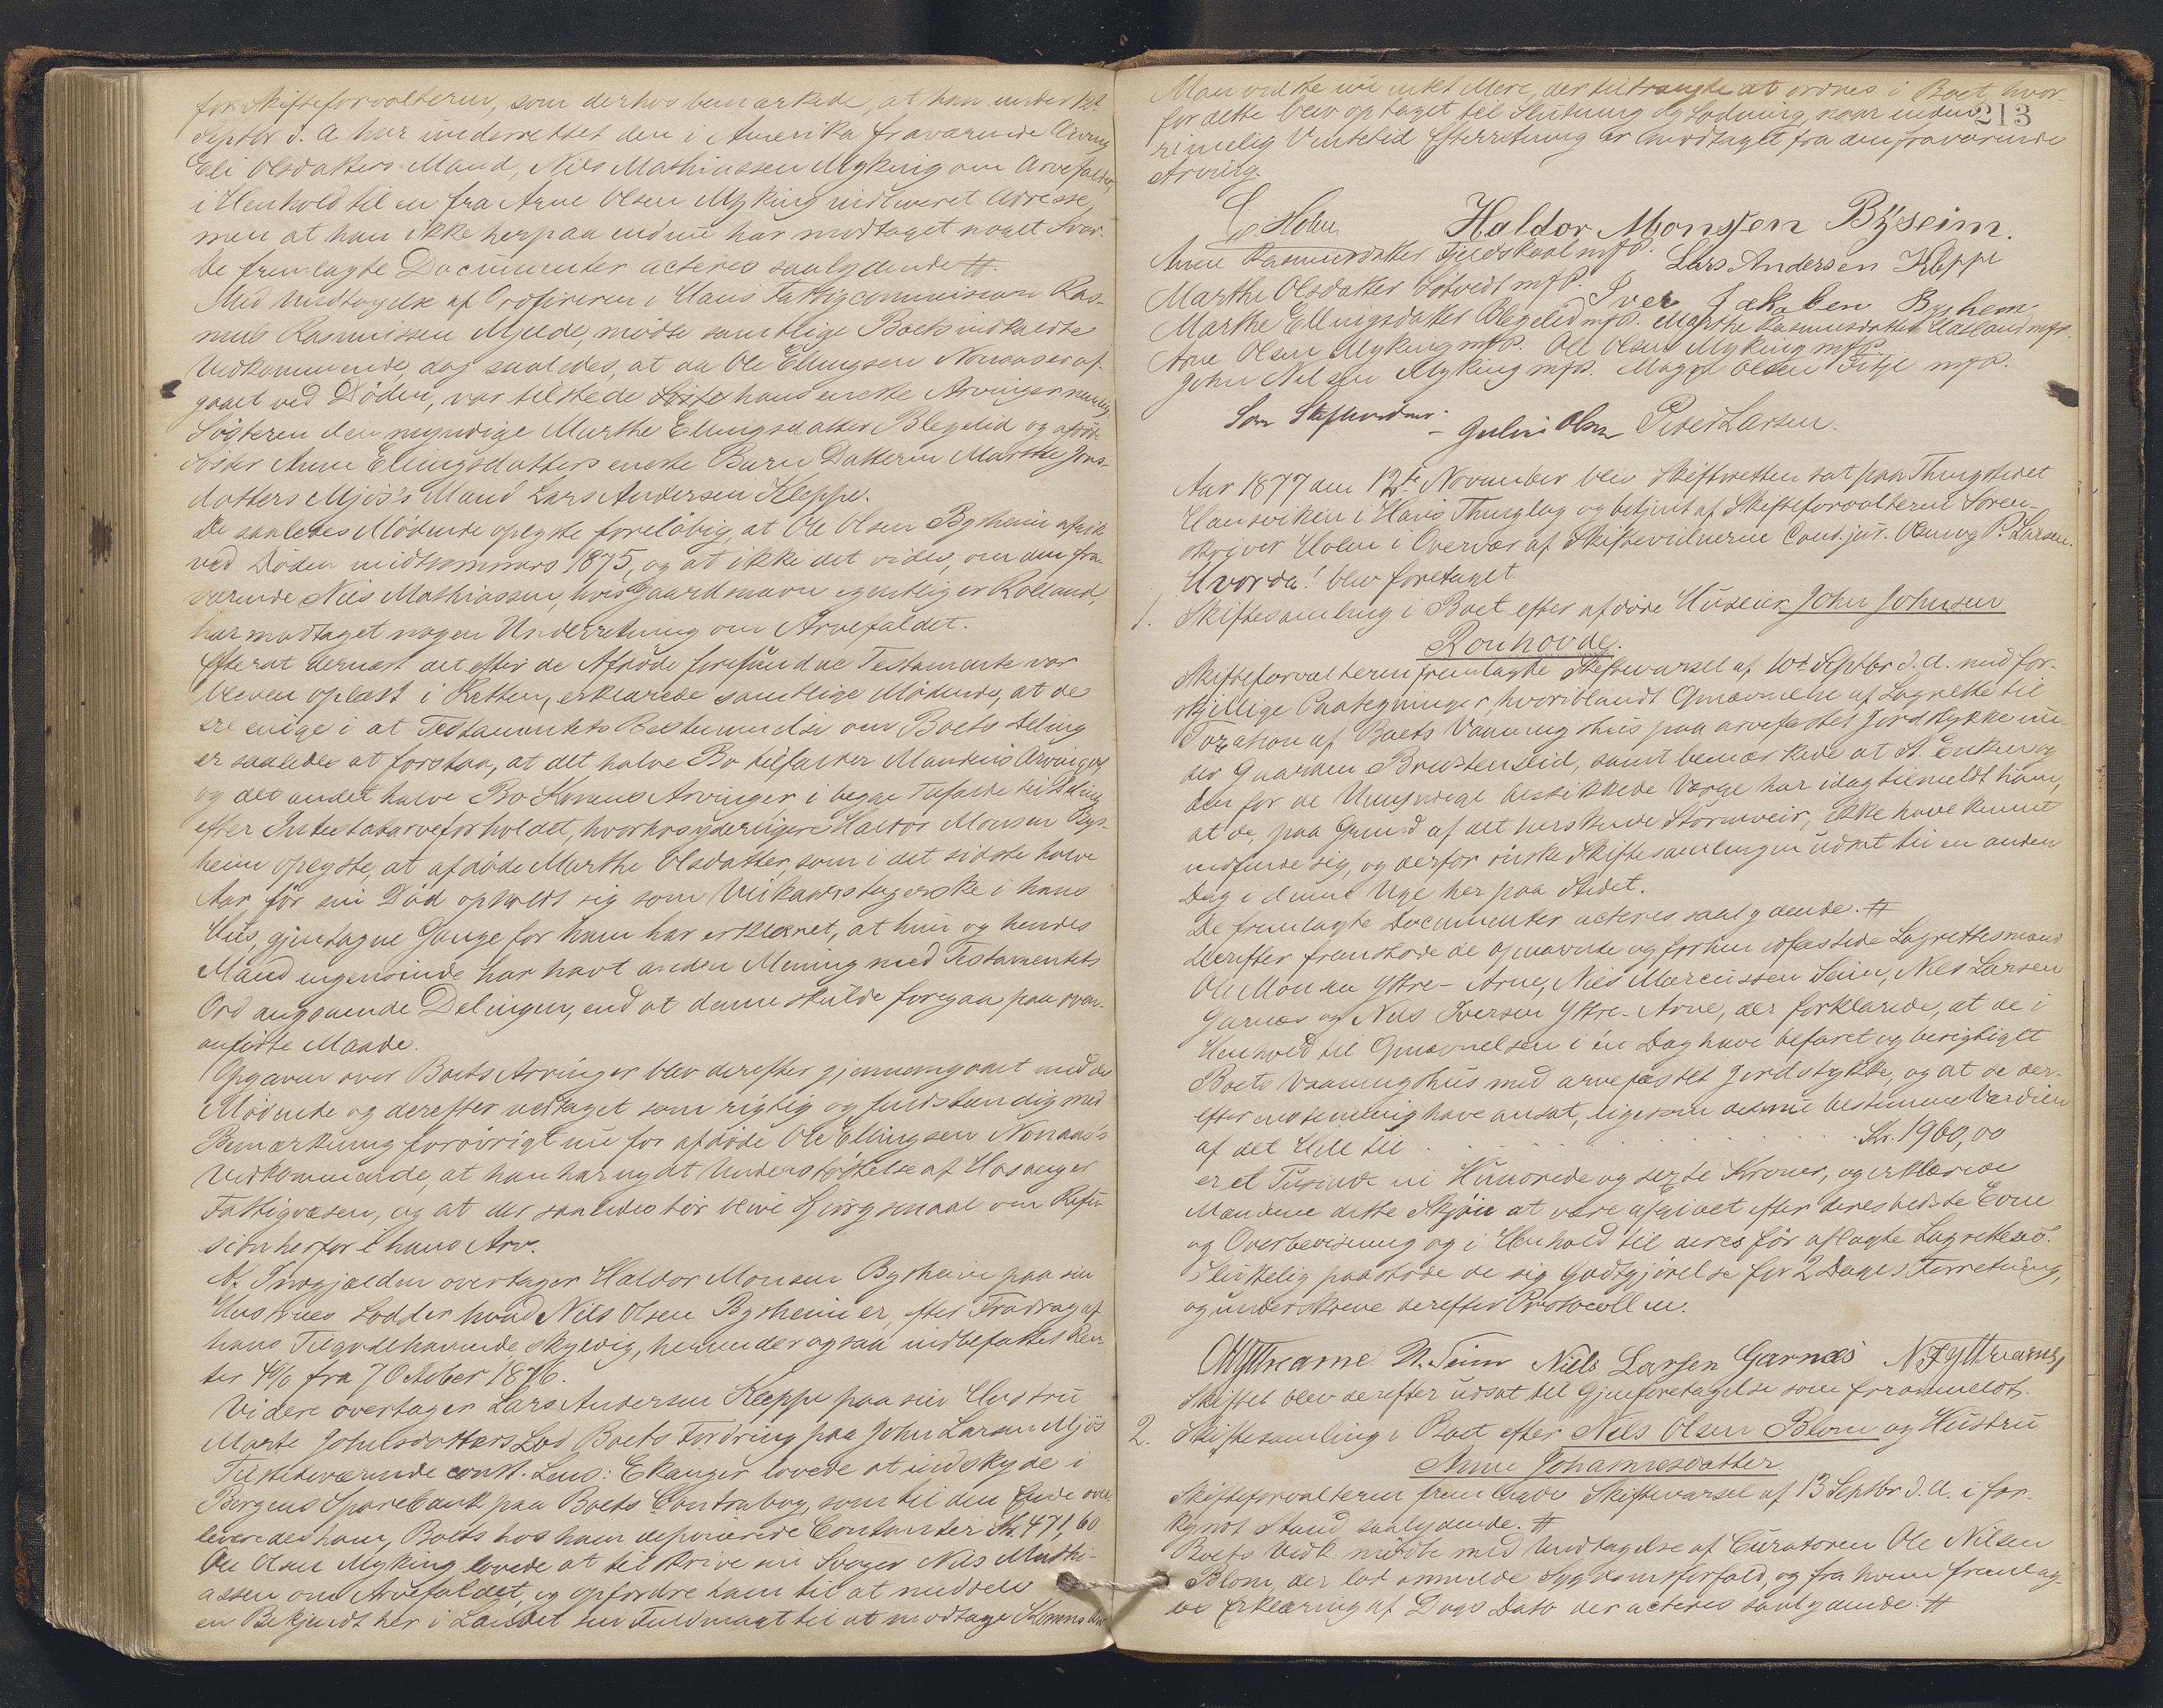 for Skifteforvalteren, som derhos bemærkede, at han under 12te
Septbr d. A har underrettet den i Amerika fraværende Arving
Eli Olsdatters Mand, Nils Mathiassen Myking om Arvefaldet,
i Henhold til en fra Arne Olsen Myking indleveret Adresse,
men at han ikke herpaa endnu har modtaget noget Svar.
De fremlagte Documenter acteres saalydende #.
Med Undtagelse af Ordføreren i Haus Fattigcommission Ras-
mus Rasmussen Mjelde, mødte samtlige Boets indkaldte
Vedkommende, dog saaledes, at da Ole Ellingsen Nonaas er af-
gaaet ved Døden, var tilstede hans eneste Arvinger nemlig
Søsteren den myndige Marthe Ellingsdatter Blegelid og afdøde
Søster Anne Ellingsdatters eneste Barn Datteren Marthe Johns-
datters Mjøs's Mand Lars Andersen Kleppe.
De saaledes Mødende oplyste foreløbig, at Ole Olsen Bysheim afgik
ved Døden midtsommers 1875, og at ikke det vides, om den fra-
værende Nils Mathiassen, hvis Gaardsnavn egentlig er Rolland,
har modtaget nogen Underretning om Arvefaldet.
Efterat dernæst det efter de Afdøde forefundne Testamente var
bleven oplæst i Retten, erklærede samtlige Mødende, at de
ere enige i at Testamentets Bestemmelse om Boets Deling
er saaledes at forstaa, at det halve Bo tilfalder Mandens Arvinger,
og det andet halve Bo Konens Arvinger, i begge Tilfælde til Deling
efter Intestatarveforholdet, hvorhos yderligere Haldor Monsen Bys-
heim oplyste, at afdøde Marthe Olsdatter, som i det sidste halve
Aar før sin Død opholdt sig som Vilkaarstagerske i hans
Hus, gjentagne Gange for ham har erklæret, at hun og hendes
Mand ingensinde har havt anden Mening med Testamentets
Ord angaaende Delingen, end at denne skulde foregaa paa oven-
anførte Maade.
Opgaven over Boets Arvinger blev derefter gjennemgaaet med de
Mødende og derefter vedtaget som rigtig og fuldstændig med
Bemærkning forøvrigt nu for afdøde Ole Ellingsen Nonaas's
Vedkommende, at han har nydt Understøttelse af Hosanger
Fattigvæsen, og at der saaledes bør blive Spørgsmaal om Refu-
sion herfor i hans Arv.
Af Indgjælden overtager Haldor Monsen Bysheim paa sin
Hustrues Lodder hvad Nils Olsen Bysheim er, efter Fradrag af
hans Tilgodehavende skyldig, herunder ogsaa indbefattet Ren-
ter 4% fra 7 October 1876.
Videre overtager Lars Andersen Kleppe paa sin Hustru
Marte Johnsdatters Lod Boets Fordring paa John Larsen Mjøs
Tilstedeværende const. Lens: Ekanger lovede at indskyde i
Bergens Sparebank paa Boets Contrabog, som til den Ende over-
leveredes ham, Boets hos ham deponerede Contanter Kr. 471,60
Ole Olsen Myking lovede at tilskrive sin Svoger Nils Mathi-
assen om Arvefaldet, og opfordre ham til at meddele
en Bekjendt her i Landet sin Fuldmagt til at modtage Konens Arv
213
Man vidste nu intet Mere, der tiltrængte at ordnes i Boet, hvor-
for dette blev optaget til Slutning og Lodning, naar inden
rimelig Ventetid Efterretning er modtaget fra den fraværende
Arving.
C. Holm Haldor Monsen Bysheim.
Anne Rasmusdatter Fjeldskaal m.f.P. Lars Andersen Kleppe
Marthe Olsdatter Løtvedt m.f.P. Iver Jakobsen Bysheim
Marthe Ellingsdatter Blegelid m.f.P. Marthe Rasmusdatter Hatland m.f.P.
Arne Olsen Myking m.f.P. Ole Olsen Myking m.f.P.
John Nilsen Myking m.f.P. Magel Olsen Fitje m.f.P.
Som Skiftevidner: Gulius Olsen Peder Larsen.
Aar 1877 den 12te November blev Skifteretten sat paa Thingstedet
Hansviken i Haus Thinglag og betjent af Skifteforvalteren Soren-
skriver Holm i Overvær af Skiftevidnerne Cand. jur. Olsen og P. Larsen.
Hvorda! blev foretaget.
1. Skiftesamling i Boet efter afdøde Huseier John Johnsen
Ronhovde.
Skifteforvalteren fremlagde Skiftevarsel af 10de Septbr d. A. med for-
skjellige Paategninger, hvoriblandt Opnævnelse af Lagrette til
Taxation af Boets Vaaningshus paa arvefæstet Jordstykke un-
der Gaarden Bruslenseid, samt bemærkede at A. Enken og
den for de Umyndige beskikkede Værge har idag tilmeldt ham,
at de, paa Grund af det herskende Stormveir, ikke have kunnet
indfinde sig, og derfor ønske Skiftesamlingen udsat til en anden
Dag i denne Uge her paa Stedet.
De fremlagte Documenter acteres saalydende. #
Derefter fremstode de opnævnte og forhen edfæstede Lagrettesmænd
Ole Monsen Ytre-Arne, Nils Marcussen Seim, Nils Larsen
Garnæs og Nils Iversen Ytre-Arne, der forklarede, at de i
Henhold til Opnævnelsen i en Dag have befaret og besigtiget
Boets Vaaningshus med arvefæstet Jordstykke, og at de der-
efter med enig have ansat, ligesom de nu bestemme Værdien
af det Hele til . . . . . . . . Kr. 1960,00
er et Tusinde ni Hundrede og sexti Kroner, og erklærede
Mændene dette Skjøn at være afgivet efter deres bedste Evne
og Overbevisning og i Henhold til deres før aflagte Lagrettesed.
Sluttelig paastode de sig Godtgjørelse for 2 Dages Forretning,
og underskreve derefter Protocollen.
OMYttrearne. N. Seim Niels Larsen Garnæs NIYttrearne,
Skiftet blev derefter udsat til Gjenforetagelse som forommeldt.
2. Skiftesamling i Boet efter Nils Olsen Blom og Hustru
Anne Johannesdatter.
Skifteforvalteren fremlagde Skiftevarsel af 13 Septbr d. A. i for-
kyndt Stand, saalydende. #
Boets Vedk. mødte med Undtagelse af Curatoren Ole Nilsen
Blom, der lod anmelde Sygdomsforfald, og fra hvem fremlag-
des Erklæring af Dags Dato der acteres saalydende. #